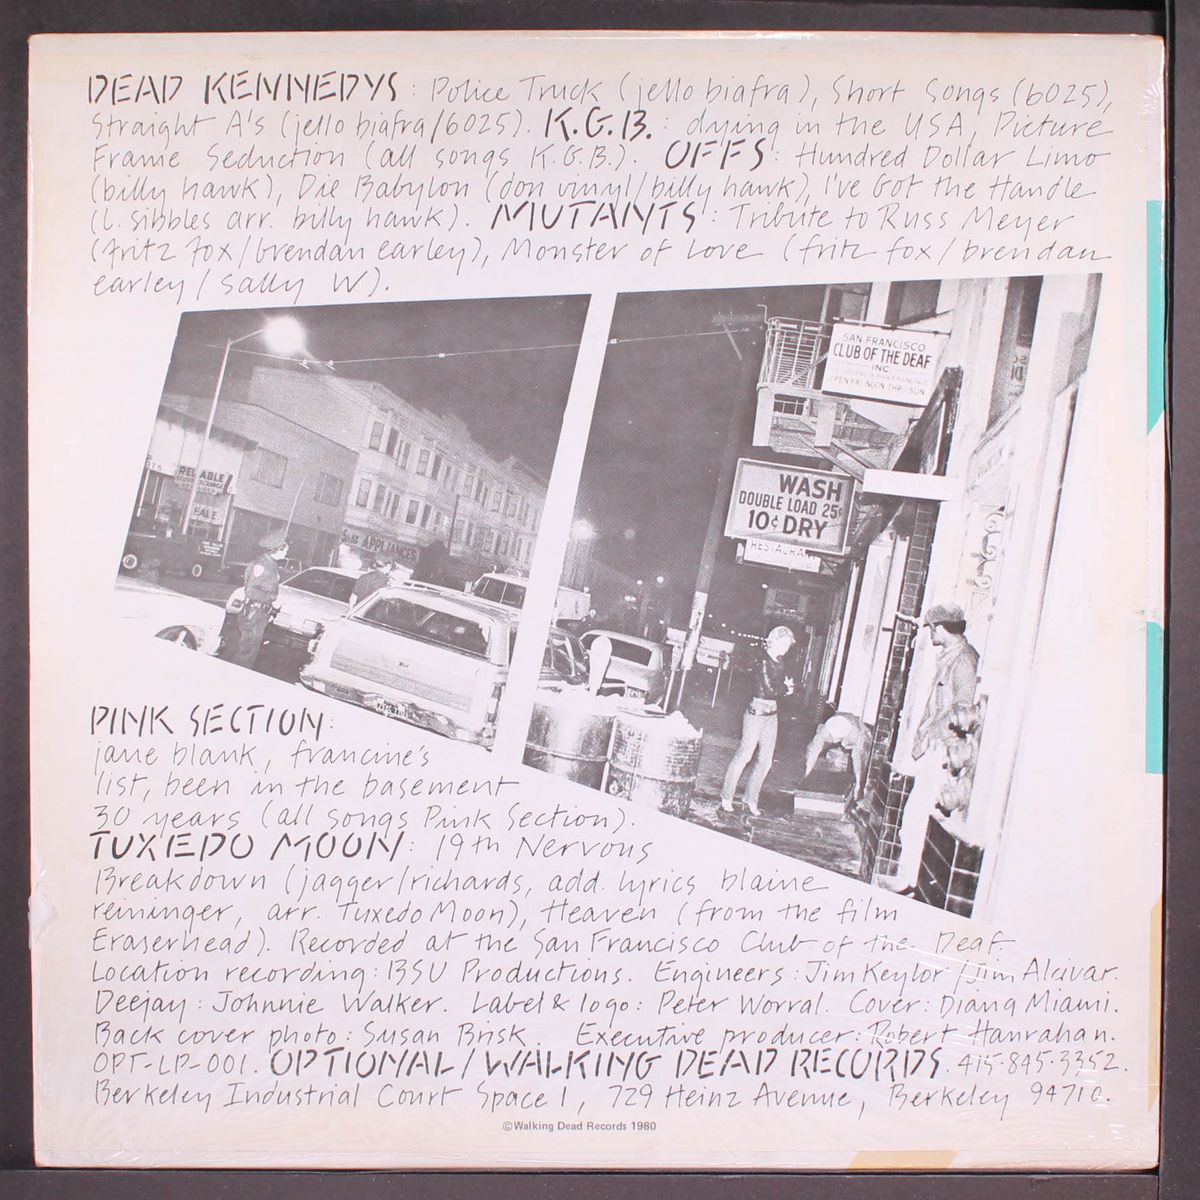 DEAD KENNEDYS: Police Truck (jello biafra), Short Songs (6025),
Straight A's (jello biafra/6025). K.G.B.: dying in the USA, Picture
Frame Seduction (all songs K.G.B.). OFFS: Hundred Dollar Limo
(billy hawk), Die Babylon (don vinyl/billy hawk), I've Got the Handle
(L. Sibbles arr. billy hawk). MUTANTS: Tribute to Russ Meyer
(fritz fox/brendan earley), Monster of Love (fritz fox/brendan
earley/Sally W).
SAN FRANCISCO
CLUB OF THE DEAF
INC
OPEN FRI NOON THRU SUN
RELIABLE
SALE
APPLIANCES
WASH
DOUBLE LOAD 25¢
10¢ DRY
RESTAURA
PINK SECTION:
jane blank, francine's
list, been in the basement
30 years (all songs Pink Section).
TUXEDO MOON: 19th Nervous
Breakdown (jagger/richards, add. lyrics blaine
reininger, arr. Tuxedo Moon), Heaven (from the film
Eraserhead). Recorded at the San Francisco Club of the Deaf.
Location recording: BSU Productions. Engineers: Jim Keylor/Jim Alcivar.
Deejay: Johnnie Walker. Label & logo: Peter Worral. Cover: Diana Miami.
Back cover photo: Susan Brisk. Executive producer: Robert Hanrahan.
OPT-LP-001. OPTIONAL/WALKING DEAD RECORDS. 415-845-3352.
Berkeley Industrial Court Space 1, 729 Heinz Avenue, Berkeley 94710.
©Walking Dead Records 1980